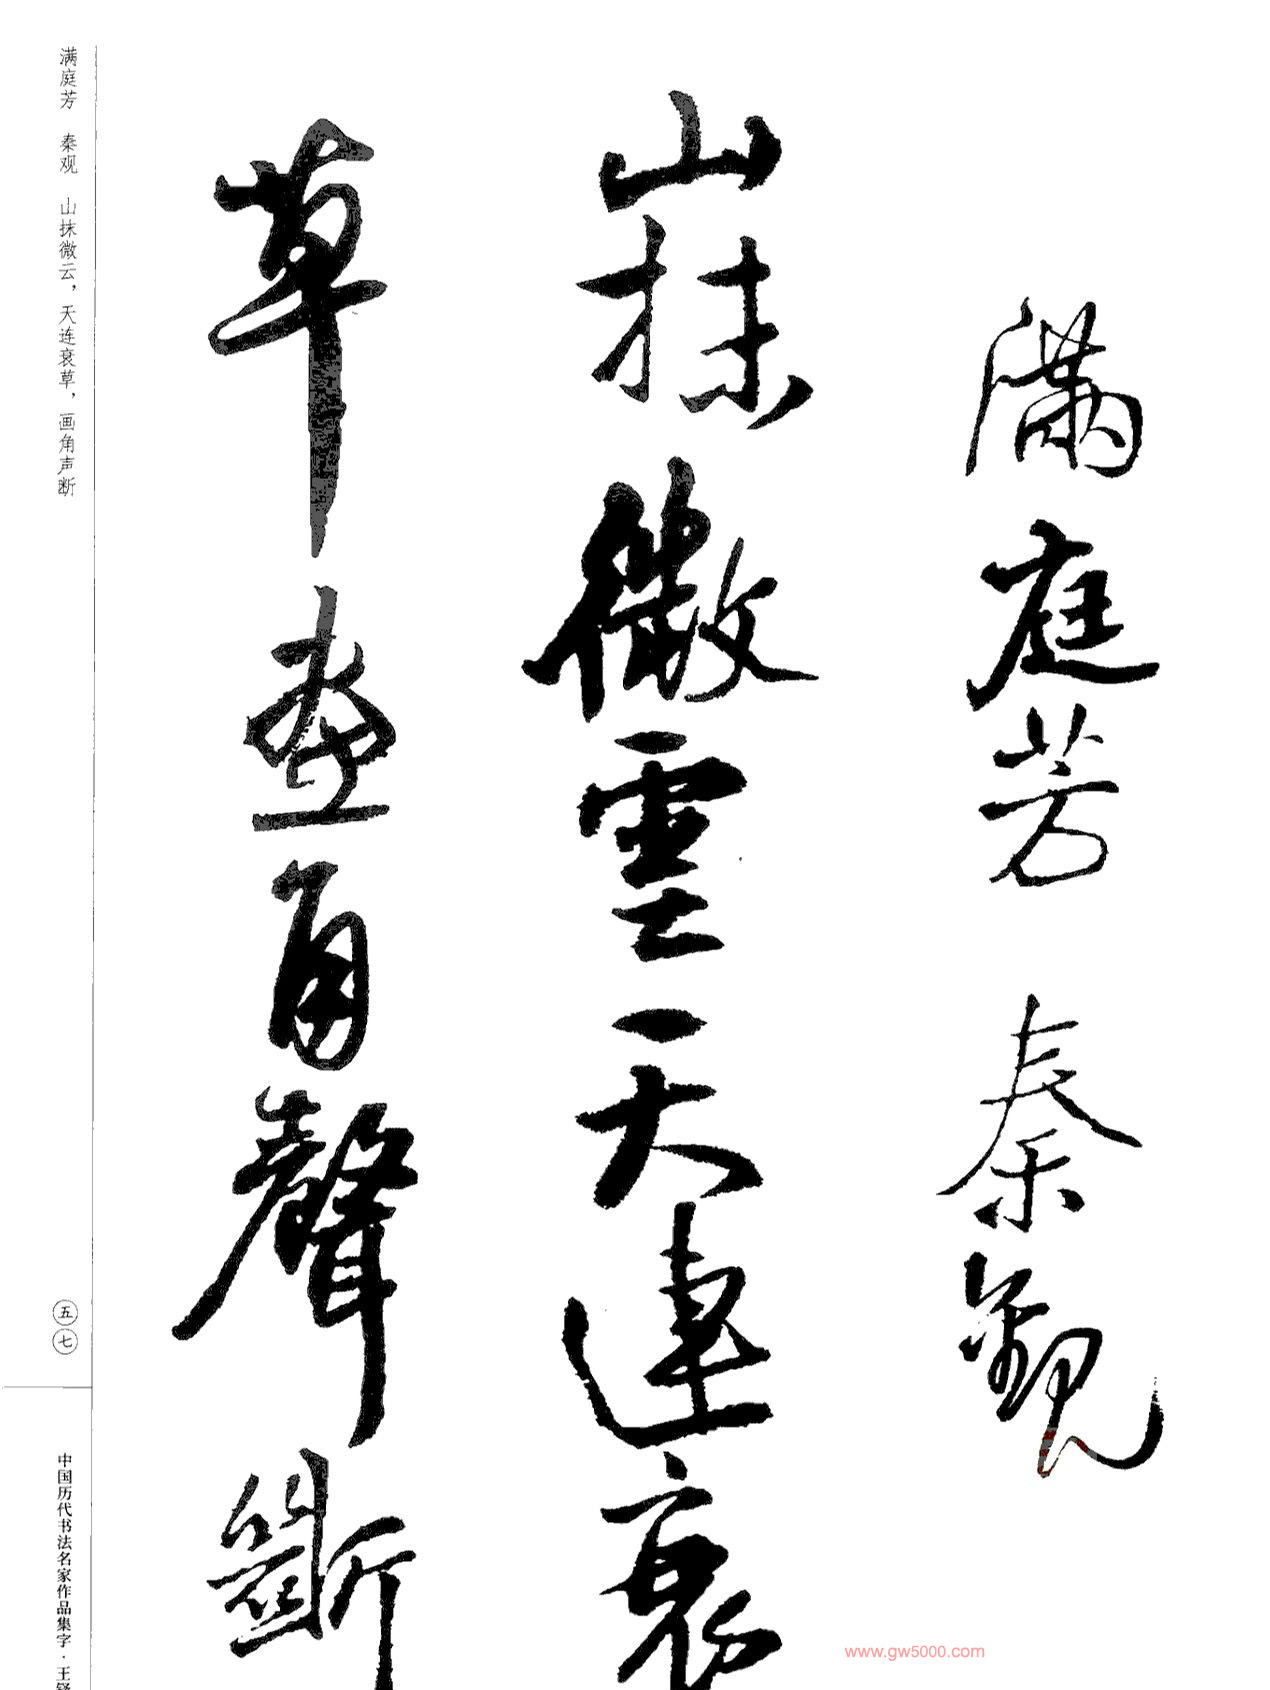 滿庭芳 秦觀
山抹微雲天連衰
草畫角聲斷
满庭芳 秦观 山抹微云，天连衰草，画角声断
五七
中国历代书法名家作品集字·王铎
www.gw5000.com